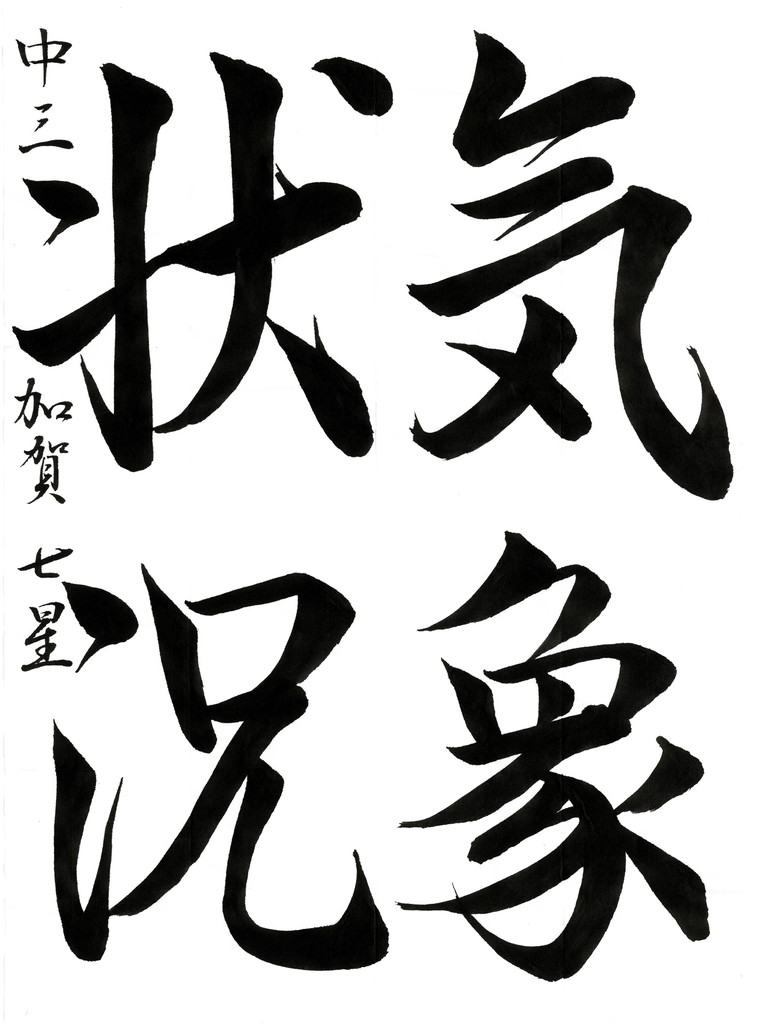 気象
状況
中三 加賀 七星